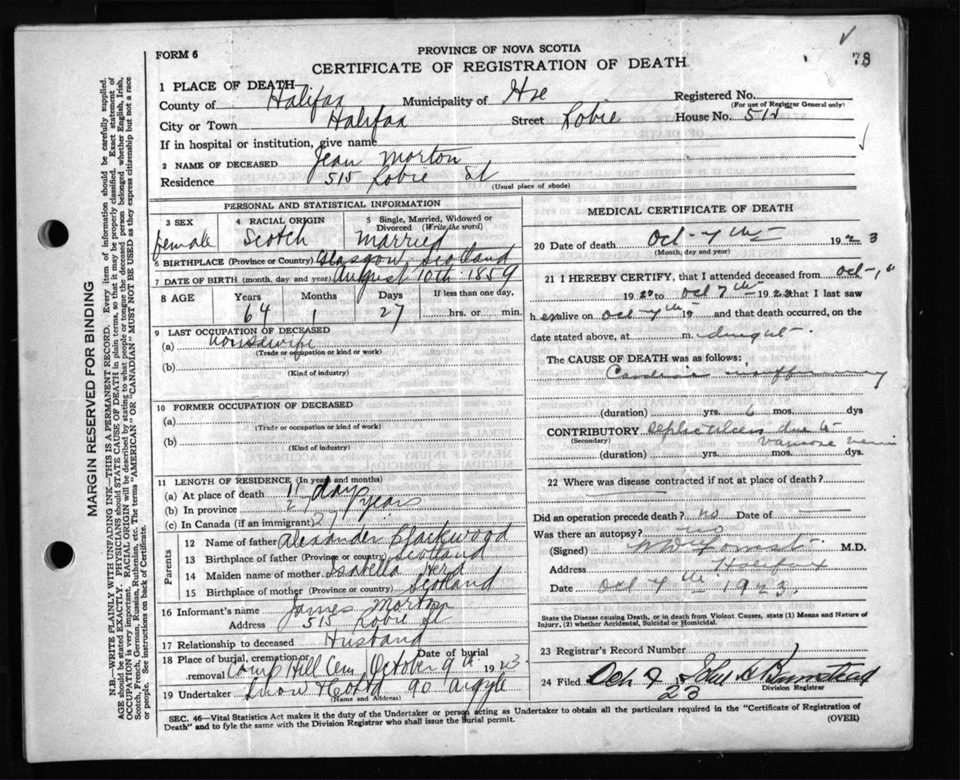 FORM 6
PROVINCE OF NOVA SCOTIA
CERTIFICATE OF REGISTRATION OF DEATH
78
1 PLACE OF DEATH
County of Halifax Municipality of Hx Registered No.
(For use of Registrar General only)
City or Town Halifax Street Robie House No. 515
If in hospital or institution, give name
2 NAME OF DECEASED Jean Morton
Residence 515 Robie St
(Usual place of abode)
PERSONAL AND STATISTICAL INFORMATION
3 SEX female
4 RACIAL ORIGIN Scotch
5 Single, Married, Widowed or Divorced (Write the word) Married
6 BIRTHPLACE (Province or Country) Glasgow Scotland
7 DATE OF BIRTH (month, day and year) August 10th 1859
8 AGE Years 64 Months 1 Days 27 If less than one day, hrs. or min.
9 LAST OCCUPATION OF DECEASED
(a) housewife
(Trade or occupation or kind or work)
(b)
(Kind of industry)
10 FORMER OCCUPATION OF DECEASED
(a)
(Trade or occupation or kind or work)
(b)
(Kind of industry)
11 LENGTH OF RESIDENCE (In years and months)
(a) At place of death 11 days
(b) In province years
(c) In Canada (if an immigrant)
Parents
12 Name of father Alexander Blackwood
13 Birthplace of father (Province or country) Scotland
14 Maiden name of mother Isabella Herd
15 Birthplace of mother (Province or country) Scotland
16 Informant's name James Morton
Address 515 Robie St
17 Relationship to deceased Husband
18 Place of burial, cremation or removal Camp Hill Cem Date of burial October 9th 1923
19 Undertaker Snow & Co Ltd 90 Argyle
(Name and Address)
MEDICAL CERTIFICATE OF DEATH
20 Date of death Oct 7th 1923
(Month, day and year)
21 I HEREBY CERTIFY, that I attended deceased from Oct 1st
1923 to Oct 7th 1923 that I last saw
her alive on Oct 7th 19 and that death occurred, on
date stated above, at m. midnight
The CAUSE OF DEATH was as follows:
Cardiac insufficiency
(duration) yrs. 6 mos. dys
CONTRIBUTORY Septic ulcers due to
(Secondary) varicose veins
(duration) yrs. mos. dys
22 Where was disease contracted if not at place of death?
Did an operation precede death? no Date of
Was there an autopsy? no
(Signed) M.D.
Address Halifax
Date Oct 7th 1923.
State the Disease causing Death, or in death from Violent Causes, state (1) Means and Nature of
Injury, (2) whether Accidental, Suicidal or Homicidal.
23 Registrar's Record Number
24 Filed Oct 9 23
Division Registrar
SEC. 46—Vital Statistics Act makes it the duty of the Undertaker or person acting as Undertaker to obtain all the particulars required in the "Certificate of Registration of
Death" and to fyle the same with the Division Registrar who shall issue the burial permit.
(OVER)
MARGIN RESERVED FOR BINDING
N.B.—WRITE PLAINLY WITH UNFADING INK—THIS IS A PERMANENT RECORD. Every item of information should be carefully supplied.
AGE should be stated EXACTLY. PHYSICIANS should STATE CAUSE OF DEATH in plain terms, so that it may be properly classified. Exact statement of
OCCUPATION is very important. RACIAL ORIGIN will be described by stating to what people or tongue the deceased person belonged whether English, Irish,
Scotch, French, German, Russian, Ruthenian, etc. The terms "AMERICAN" OR "CANADIAN" MUST NOT BE USED as they express citizenship but not a race
or people. See instructions on back of Certificate.